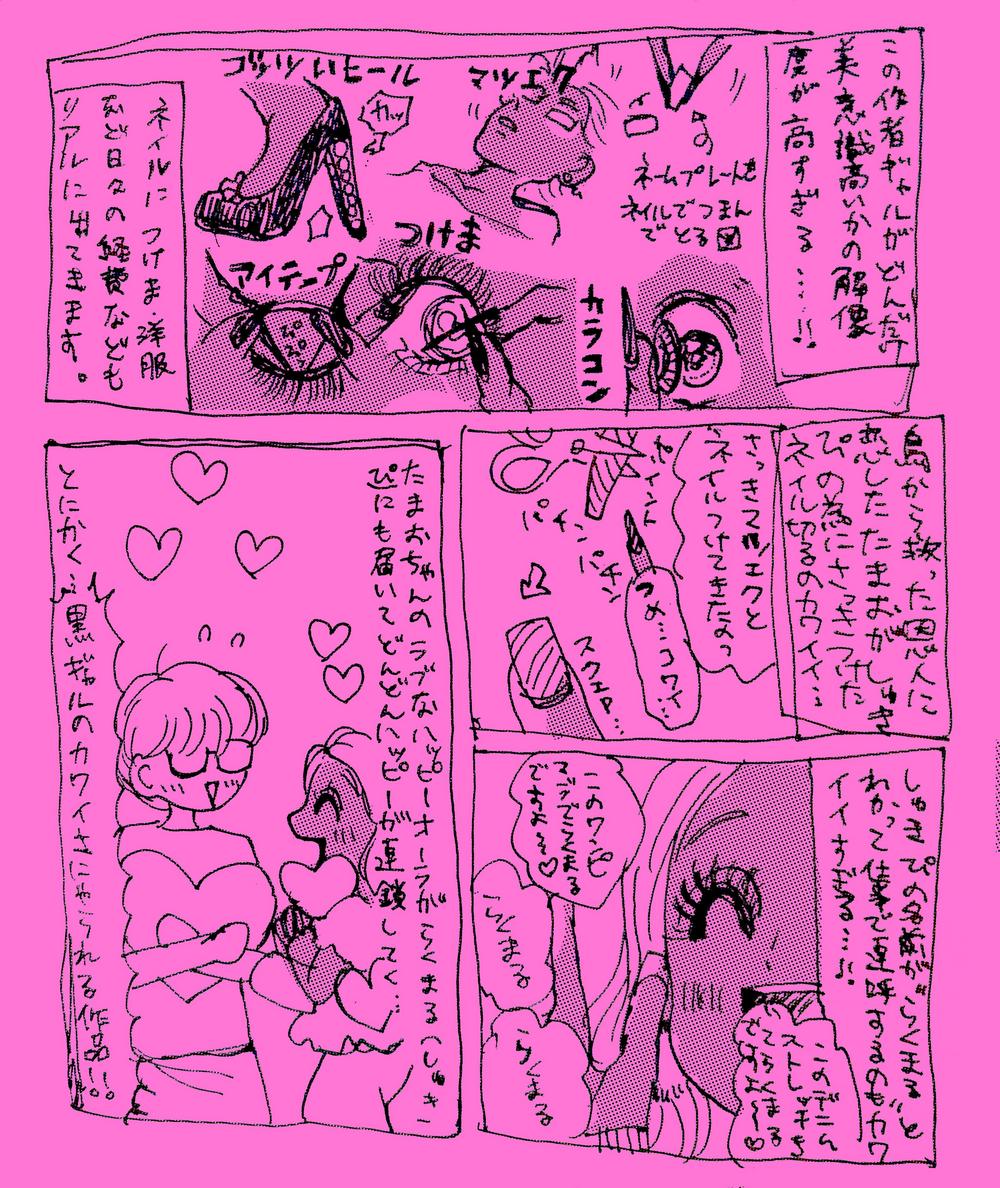 この作者ギャルがどんだけ
美意識高いかの解像
度が高すぎる……!!
ネームプレートを
ネイルでつまん
でとる図
マツエク
ゴッツいヒール
カッ
カラコン
つけま
アイテープ
ネイルに つけま 洋服
など日々の経費なども
リアルに出てきます。
鳥から救った恩人に
恋したたまおがしゅき
ぴの為にさっきつけた
ネイル切るのカワイイ…
さっきマツエクと
ネイルつけてきたのっ
ポイント
つめ…コワイ…
パチンパチン
スクエア…
しゅきぴの名前が"らくまる"と
わかって仕事で連呼するのもカワ
イイすぎる…!!
このデニム
ストレッチきい
てらくまる
ですよ〜♡
このワンピ
マジでらくまる
ですよ〜♡
らくまる
らくまる
たまおちゃんのラブなハッピーオーラがらくまる(しゅき
ぴにも届いてどんどんハッピーが連鎖してく…
とにかく…黒ギャルのカワイさにやられる作品!!